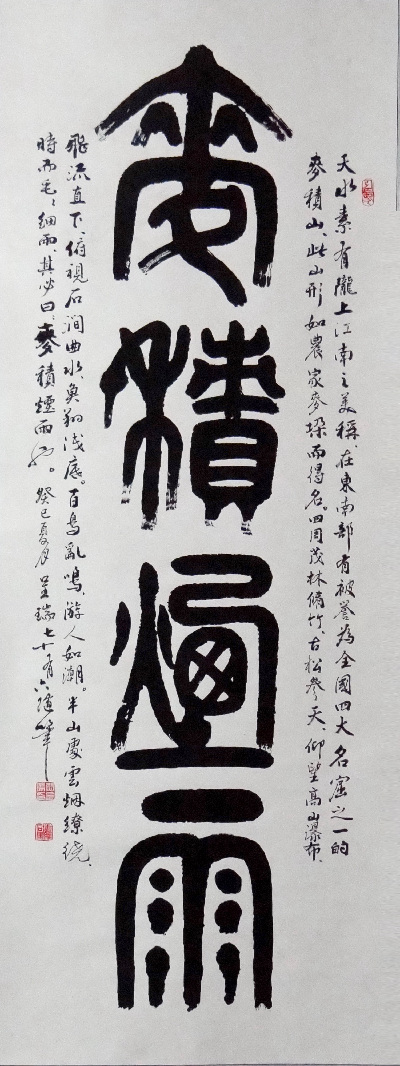 麥積煙雨
天水素有隴上江南之美稱、在東南部有被譽為全國四大名窟之一的
麥積山、此山形如農家麥垛而得名。四周茂林脩竹、古松參天、仰望高山瀑布、
飛流直下、俯視石澗曲水、魚翔淺底。百鳥亂鳴、游人如潮。半山處雲烟繚繞、
時而毛毛細雨、其必曰、麥積煙雨也。癸巳夏月呈瑞七十有六隨筆